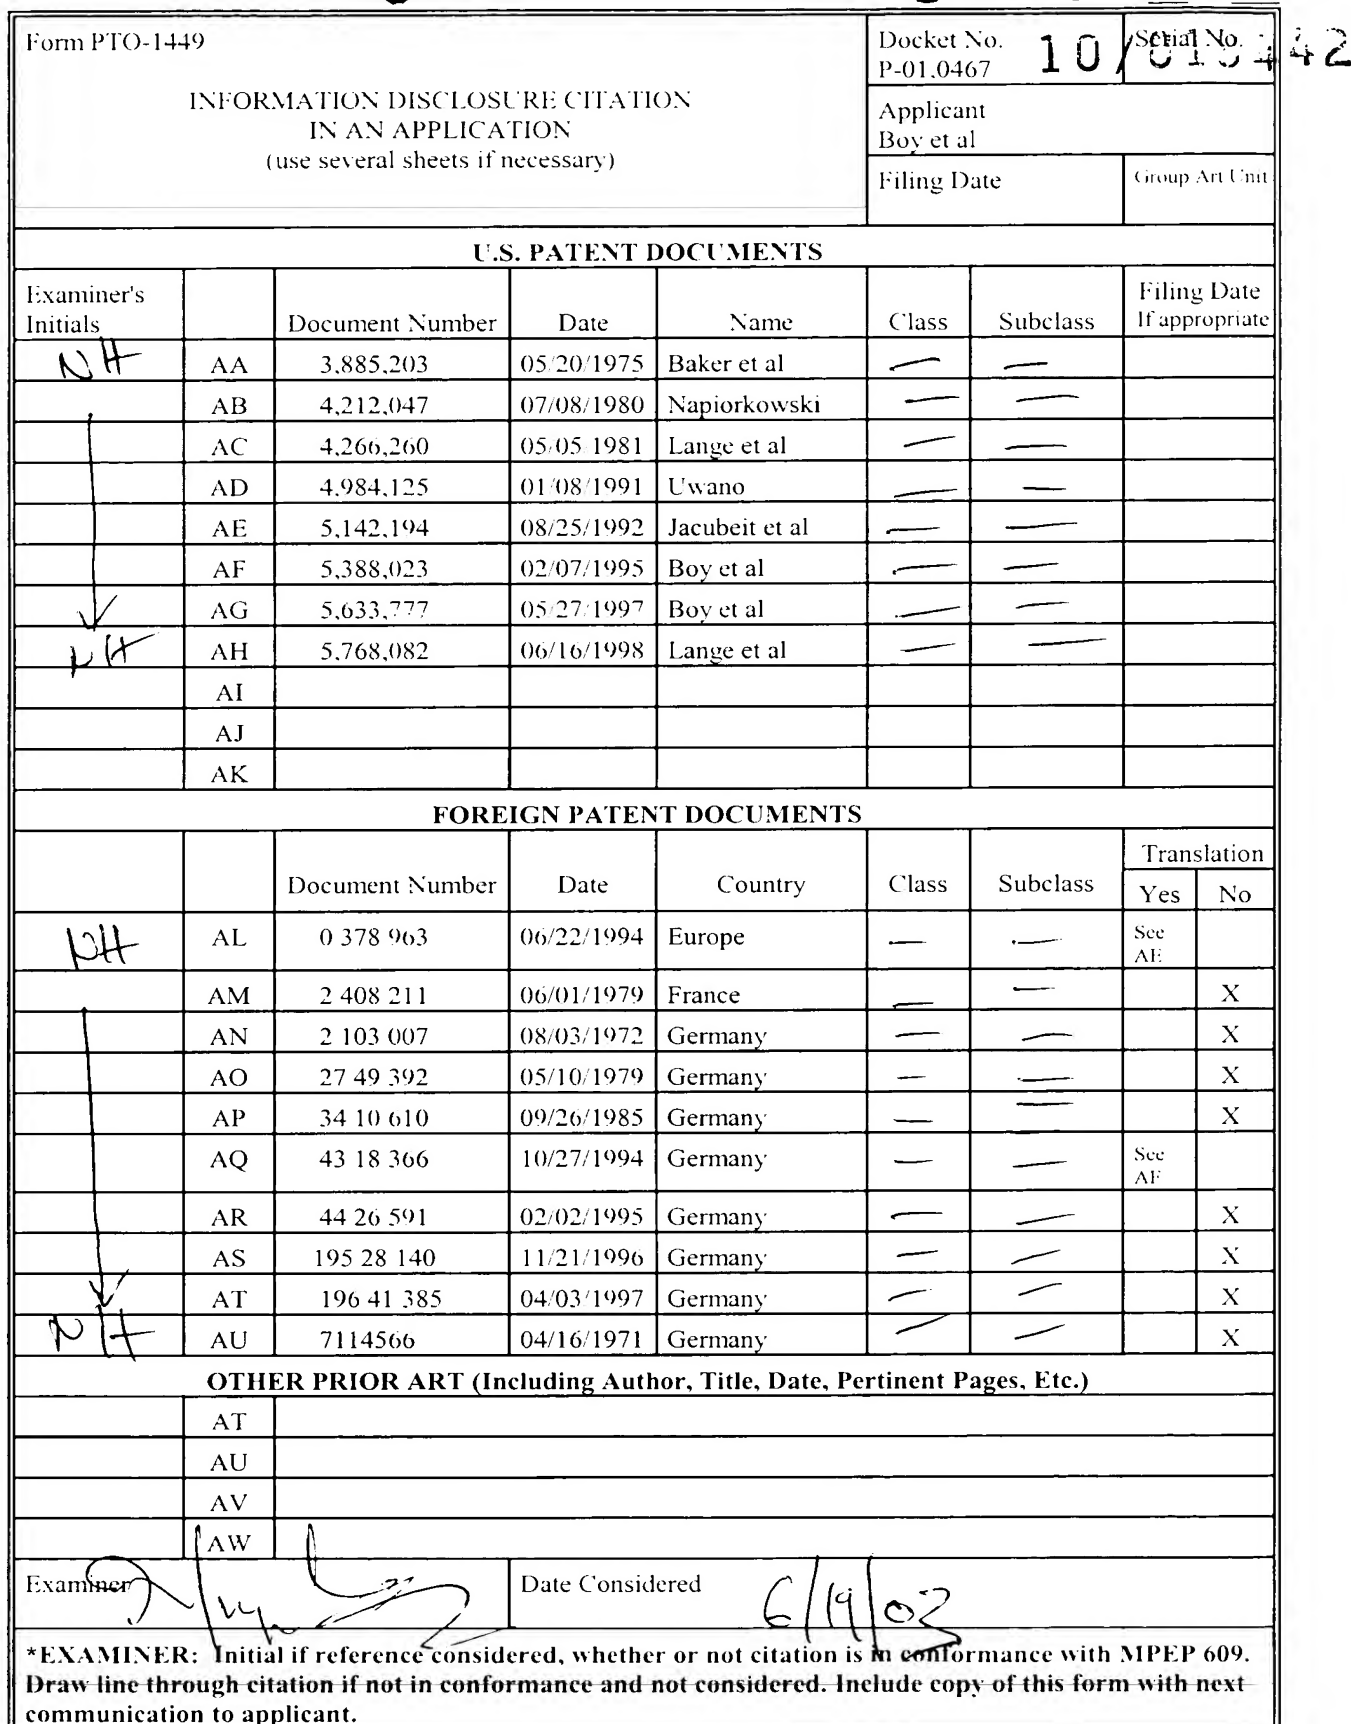 Form PTO-1449
Docket No.
P-01,0467
Serial No.
10/
442
INFORMATION DISCLOSURE CITATION
IN AN APPLICATION
(use several sheets if necessary)
Applicant
Boy et al
Filing Date
Group Art Unit
U.S. PATENT DOCUMENTS
Examiner's Initials Document Number Date Name Class Subclass Filing Date If appropriate
NH AA 3,885,203 05/20/1975 Baker et al — —
AB 4,212,047 07/08/1980 Napiorkowski — —
AC 4,266,260 05/05/1981 Lange et al — —
AD 4,984,125 01/08/1991 Uwano — —
AE 5,142,194 08/25/1992 Jacubeit et al — —
AF 5,388,023 02/07/1995 Boy et al — —
AG 5,633,777 05/27/1997 Boy et al — —
NH AH 5,768,082 06/16/1998 Lange et al — —
AI
AJ
AK
FOREIGN PATENT DOCUMENTS
Document Number Date Country Class Subclass Translation
Yes No
NH AL 0 378 963 06/22/1994 Europe — — See AE
AM 2 408 211 06/01/1979 France — — X
AN 2 103 007 08/03/1972 Germany — — X
AO 27 49 392 05/10/1979 Germany — — X
AP 34 10 610 09/26/1985 Germany — — X
AQ 43 18 366 10/27/1994 Germany — — See AF
AR 44 26 591 02/02/1995 Germany — — X
AS 195 28 140 11/21/1996 Germany — — X
AT 196 41 385 04/03/1997 Germany — — X
NH AU 7114566 04/16/1971 Germany — — X
OTHER PRIOR ART (Including Author, Title, Date, Pertinent Pages, Etc.)
AT
AU
AV
AW
Examiner
Date Considered 6/19/03
*EXAMINER: Initial if reference considered, whether or not citation is in conformance with MPEP 609.
Draw line through citation if not in conformance and not considered. Include copy of this form with next
communication to applicant.